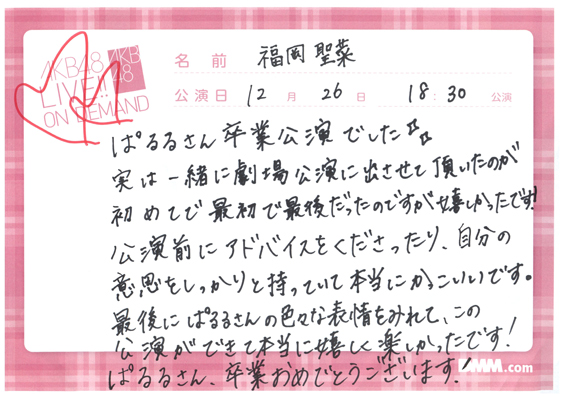 AKB48
LIVE!!
ON DEMAND
AKB
48
名前 福岡聖菜
公演日 12月26日 18:30 公演
ぱるるさん卒業公演でした
実は一緒に劇場公演に出させて頂いたのが
初めてで最初で最後だったのですが嬉しかったです!
公演前にアドバイスをくださったり、自分の
意思をしっかりと持っていて本当にかっこいいです。
最後にぱるるさんの色々な表情をみれて、この
公演ができて本当に嬉しく楽しかったです!
ぱるるさん、卒業おめでとうございます!
DMM.com